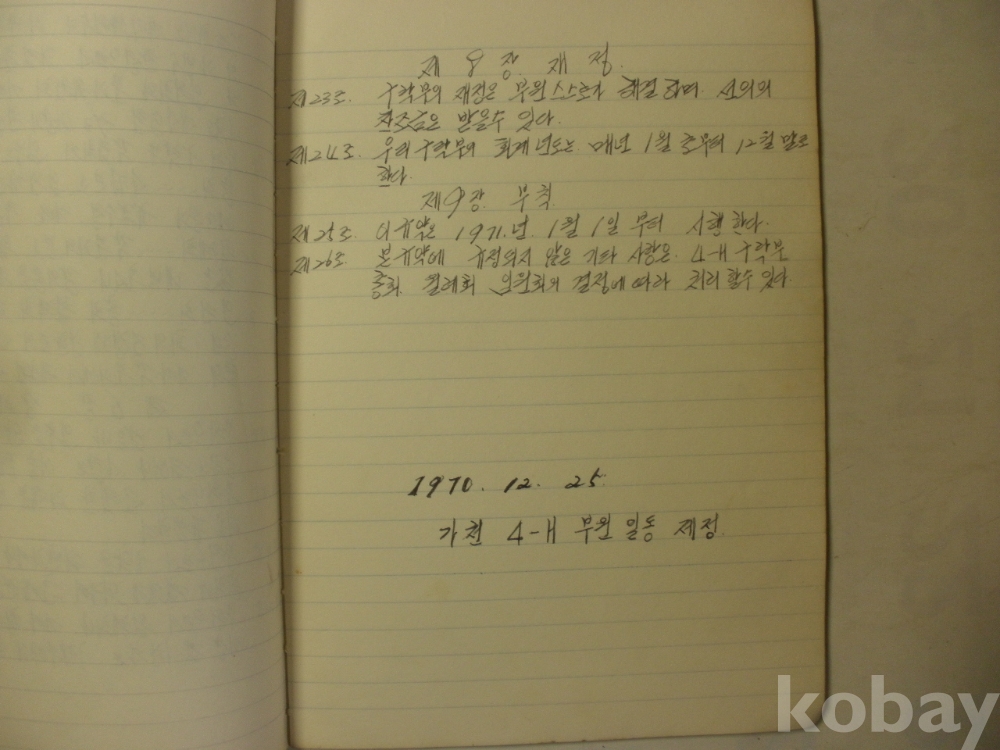 제 8 장. 재 정.
제23조. 구락부의 재정은 부원 스스로가 해결하며 선의의
찬조금은 받을수 있다.
제24조. 우리 구락부의 회계년도는 매년 1월 로부터 12월 말로
한다.
제9장 부칙
제25조. 이 규약은 1971.년. 1월 1일 부터 시행한다.
제26조 본 규약에 규정되지 않은 기타 사항은. 4-H 구락부
총회. 월례회 임원회의 결정에 따라 처리 할수 있다.
1970. 12. 25.
가천 4-H 부원 일동 제정.
kobay